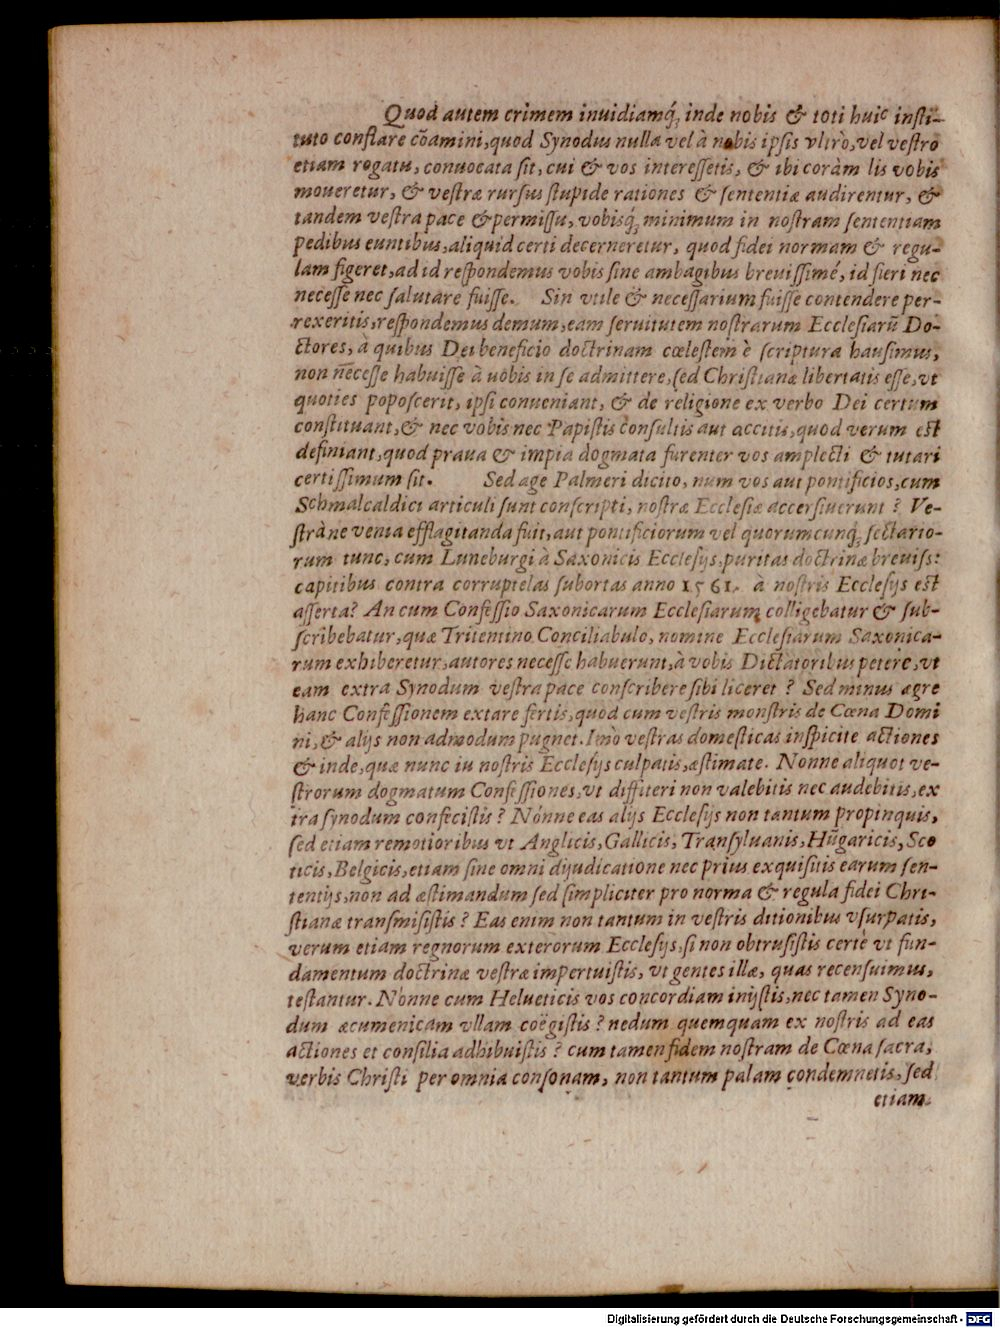 Quod autem crimem inuidiamq́; inde nobis & toti huic insti-
tuto conflare cōamini, quod Synodus nulla vel à nobis ipsis vltrò, vel vestro
etiam rogatu, conuocata sit, cui & vos interessetis, & ibi coràm lis vobis
moueretur, & vestræ rursus stupide rationes & sententiæ audirentur, &
tandem vestra pace & permissu, vobisq́; minimum in nostram sententiam
pedibus euntibus, aliquid certi decerneretur, quod fidei normam & regu-
lam figeret, ad id respondemus vobis sine ambagibus breuissimé, id fieri nec
necesse nec salutare fuisse. Sin vtile & necessarium fuisse contendere per-
rexeritis, respondemus demum, eam seruitutem nostrarum Ecclesiarū Do-
ctores, à quibus Dei beneficio doctrinam cœlestem è scriptura hausimus,
non necesse habuisse à uobis in se admittere, sed Christianæ libertatis esse, vt
quoties poposcerit, ipsi conueniant, & de religione ex verbo Dei certum
constituant, & nec vobis nec Papistis consultis aut accitis, quod verum est
definiant, quod praua & impia dogmata furenter vos amplecti & tutari
certissimum sit. Sed age Palmeri dicito, num vos aut pontificios, cum
Schmalcaldici articuli sunt conscripti, nostræ Ecclesiæ accersiuerunt ? Ve-
stràne venia efflagitanda fuit, aut pontificiorum vel quorumcunq́; sectario-
rum tunc, cum Luneburgi à Saxonicis Ecclesijs, puritas doctrinæ breuiss:
capitibus contra corruptelas subortas anno 1561. à nostris Ecclesijs est
asserta? An cum Confessio Saxonicarum Ecclesiarum colligebatur & sub-
scribebatur, quæ Tritentino Conciliabulo, nomine Ecclesiarum Saxonica-
rum exhiberetur, autores necesse habuerunt, à vobis Dictatoribus petere, vt
eam extra Synodum vestra pace conscribere sibi liceret ? Sed minus ægre
hanc Confessionem extare fertis, quòd cum vestris monstris de Cœna Domi
ni, & alijs non admodum pugnet. Imò vestras domesticas inspicite actiones
& inde, quæ nunc in nostris Ecclesijs culpatis, æstimate. Nonne aliquot ve-
strorum dogmatum Confessiones, vt diffiteri non valebitis nec audebitis, ex
tra synodum confecistis ? Nónne eas alijs Ecclesijs non tantum propinquis,
sed etiam remotioribus vt Anglicis, Gallicis, Transyluanis, Hūgaricis, Sco
ticis, Belgicis, etiam sine omni dijudicatione nec prius exquisitis earum sen-
tentijs, non ad æstimandum sed simpliciter pro norma & regula fidei Chri-
stianæ transmisistis ? Eas enim non tantum in vestris ditionibus vsurpatis,
verum etiam regnorum exterorum Ecclesijs, si non obtrusistis certè vt fun-
damentum doctrinæ vestræ impertuistis, vt gentes illæ, quas recensuimus,
testantur. Nónne cum Helueticis vos concordiam inijstis, nec tamen Syno-
dum œcumenicam vllam coëgistis ? nedum quemquam ex nostris ad eas
actiones et consilia adhibuistis ? cum tamen fidem nostram de Cœna sacra,
verbis Christi per omnia consonam, non tantum palam condemnetis, sed
etiam
Digitalisierung gefördert durch die Deutsche Forschungsgemeinschaft - DFG